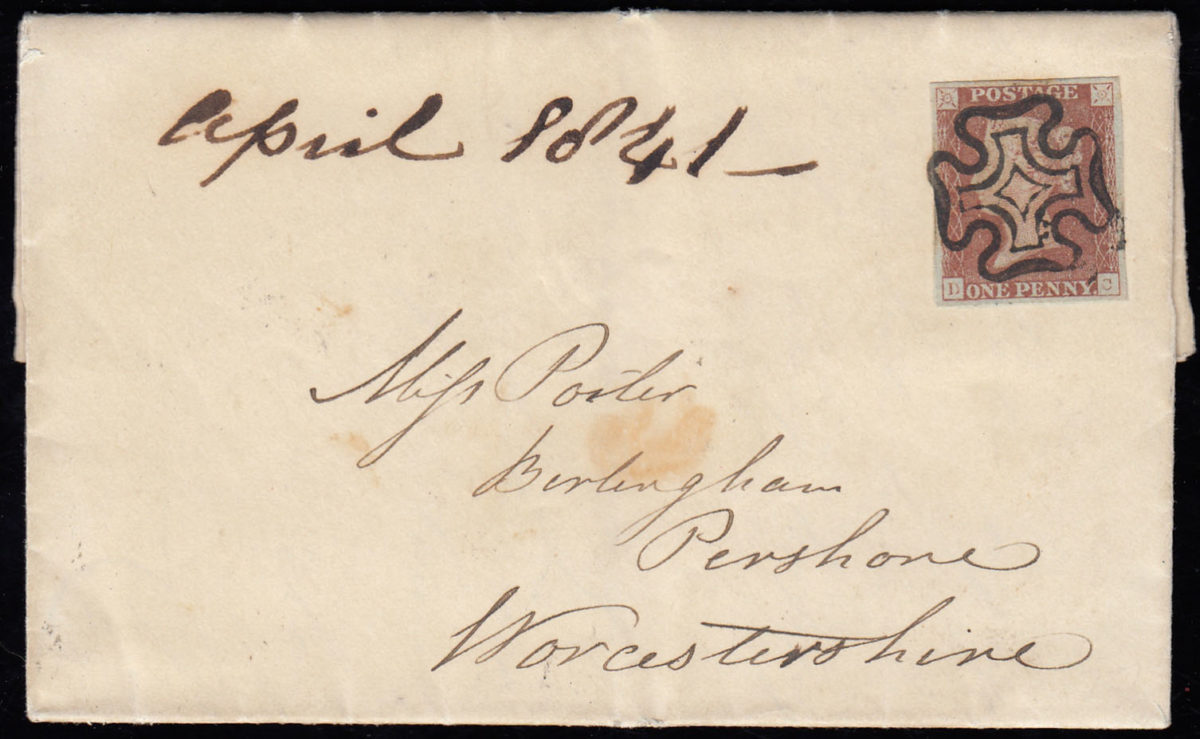 April 1841
POSTAGE
D ONE PENNY. C
Miss Porter
Berlingham
Pershore
Worcestershire